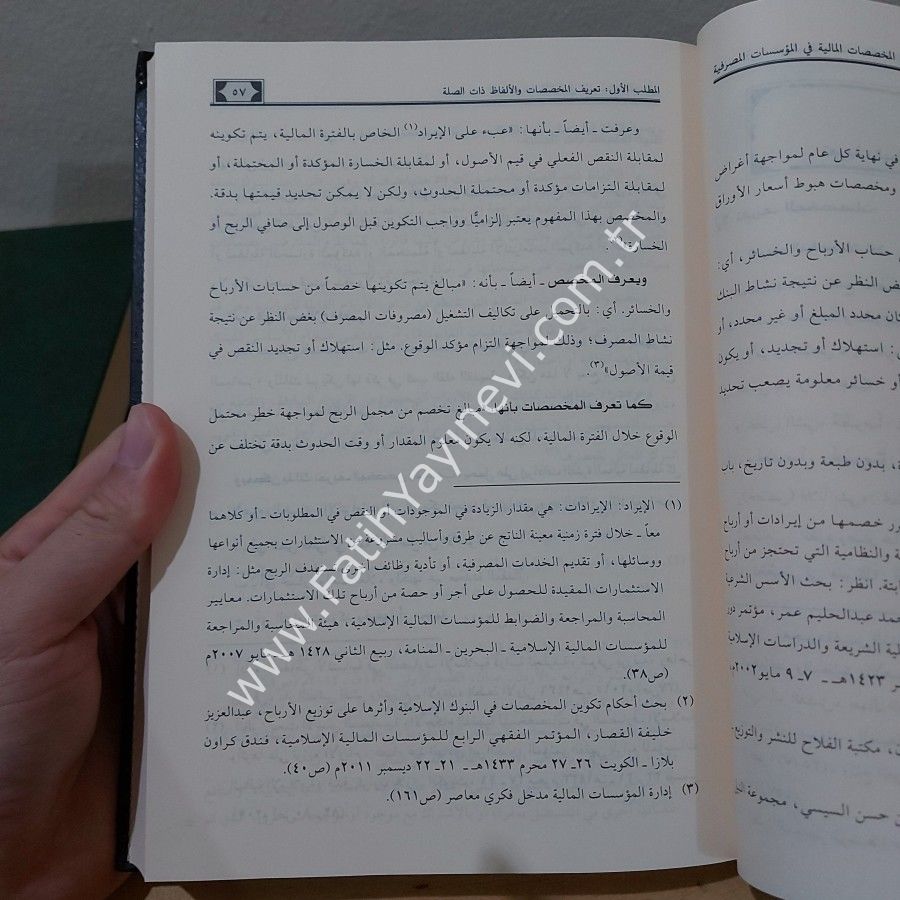 المخصصات المالية في المؤسسات المصرفية
في نهاية كل عام لمواجهة أغراض
ومخصصات هبوط أسعار الأوراق
حساب الأرباح والخسائر، أي:
النظر عن نتيجة نشاط البنك
كان محدد المبلغ أو غير محدد، أو
: استهلاك أو تجديد، أو يكون
أو خسائر معلومة يصعب تحديد
، بدون طبعة وبدون تاريخ، باب
خصمها من إيرادات أو أرباح
والنظامية التي تحتجز من أرباح
انظر: بحث الأسس الشرعية
عبدالحليم عمر، مؤتمر دور
الشريعة والدراسات الإسلامية
١٤٢٣هـ ـ ٧ـ ٩ مايو٢٠٠٢م
، مكتبة الفلاح للنشر والتوزيع
حسن السيسي، مجموعة
المطلب الأول: تعريف المخصصات والألفاظ ذات الصلة
٥٧
وعرفت ـ أيضاً ـ بأنها: «عبء على الإيراد(١) الخاص بالفترة المالية، يتم تكوينه
لمقابلة النقص الفعلي في قيم الأصول، أو لمقابلة الخسارة المؤكدة أو المحتملة، أو
لمقابلة التزامات مؤكدة أو محتملة الحدوث، ولكن لا يمكن تحديد قيمتها بدقة.
والمخصص بهذا المفهوم يعتبر إلزاميًّا وواجب التكوين قبل الوصول إلى صافي الربح أو
الخسارة»(٢).
ويعرف المخصص ـ أيضاً ـ بأنه: «مبالغ يتم تكوينها خصماً من حسابات الأرباح
والخسائر. أي: بالتحميل على تكاليف التشغيل (مصروفات المصرف) بغض النظر عن نتيجة
نشاط المصرف؛ وذلك لمواجهة التزام مؤكد الوقوع. مثل: استهلاك أو تجديد النقص في
قيمة الأصول»(٣).
كما تعرف المخصصات بأنها: «مبالغ تخصم من مجمل الربح لمواجهة خطر محتمل
الوقوع خلال الفترة المالية، لكنه لا يكون معلوم المقدار أو وقت الحدوث بدقة تختلف عن
(١) الإيراد: الإيرادات: هي مقدار الزيادة في الموجودات أو النقص في المطلوبات ـ أو كلاهما
معاً ـ خلال فترة زمنية معينة الناتج عن طرق وأساليب مشروعة من الاستثمارات بجميع أنواعها
ووسائلها، أو تقديم الخدمات المصرفية، أو تأدية وظائف أخرى تستهدف الربح مثل: إدارة
الاستثمارات المقيدة للحصول على أجر أو حصة من أرباح تلك الاستثمارات. معايير
المحاسبة والمراجعة والضوابط للمؤسسات المالية الإسلامية، هيئة المحاسبة والمراجعة
للمؤسسات المالية الإسلامية ـ البحرين ـ المنامة، ربيع الثاني ١٤٢٨ هـ ـ مايو ٢٠٠٧م
(ص٣٨).
(٢) بحث أحكام تكوين المخصصات في البنوك الإسلامية وأثرها على توزيع الأرباح، عبدالعزيز
خليفة القصار، المؤتمر الفقهي الرابع للمؤسسات المالية الإسلامية، فندق كراون
بلازا ـ الكويت ٢٦ـ ٢٧ محرم ١٤٣٣هـ ـ ٢١ـ ٢٢ ديسمبر ٢٠١١م (ص٤٠).
(٣) إدارة المؤسسات المالية مدخل فكري معاصر (ص١٦١).
www.FatihYayinevi.com.tr